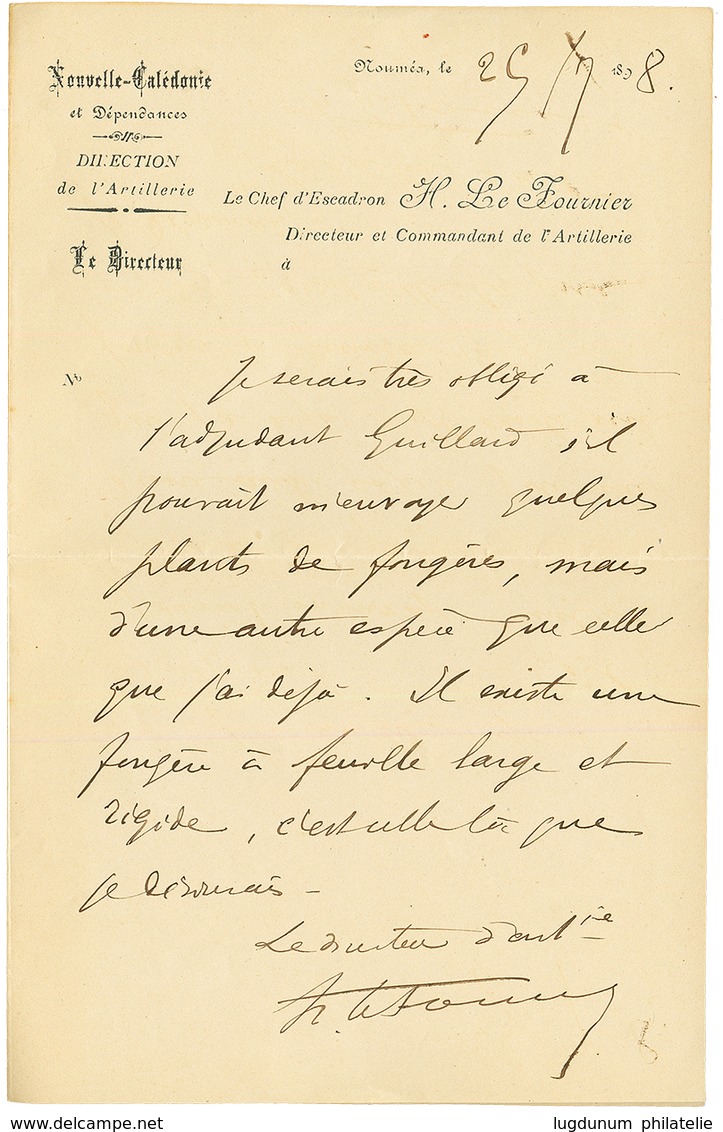 Nouvelle-Calédonie
et Dépendances
DIRECTION
de l'Artillerie
Le Directeur
Nouméa, le 25/7 1898.
Le Chef d'Escadron H. Le Fournier
Directeur et Commandant de l'Artillerie
à
No
Je serais très obligé à
l'adjudant Guillard s'il
pouvait m'envoyer quelques
plants de fougères, mais
d'une autre espèce que celle
que j'ai déjà. Il existe une
fougère à feuille large et
rigide, c'est celle là que
je désirerais -
Le directeur d'art ie
H. Le Fournier
lugdunum philatelie